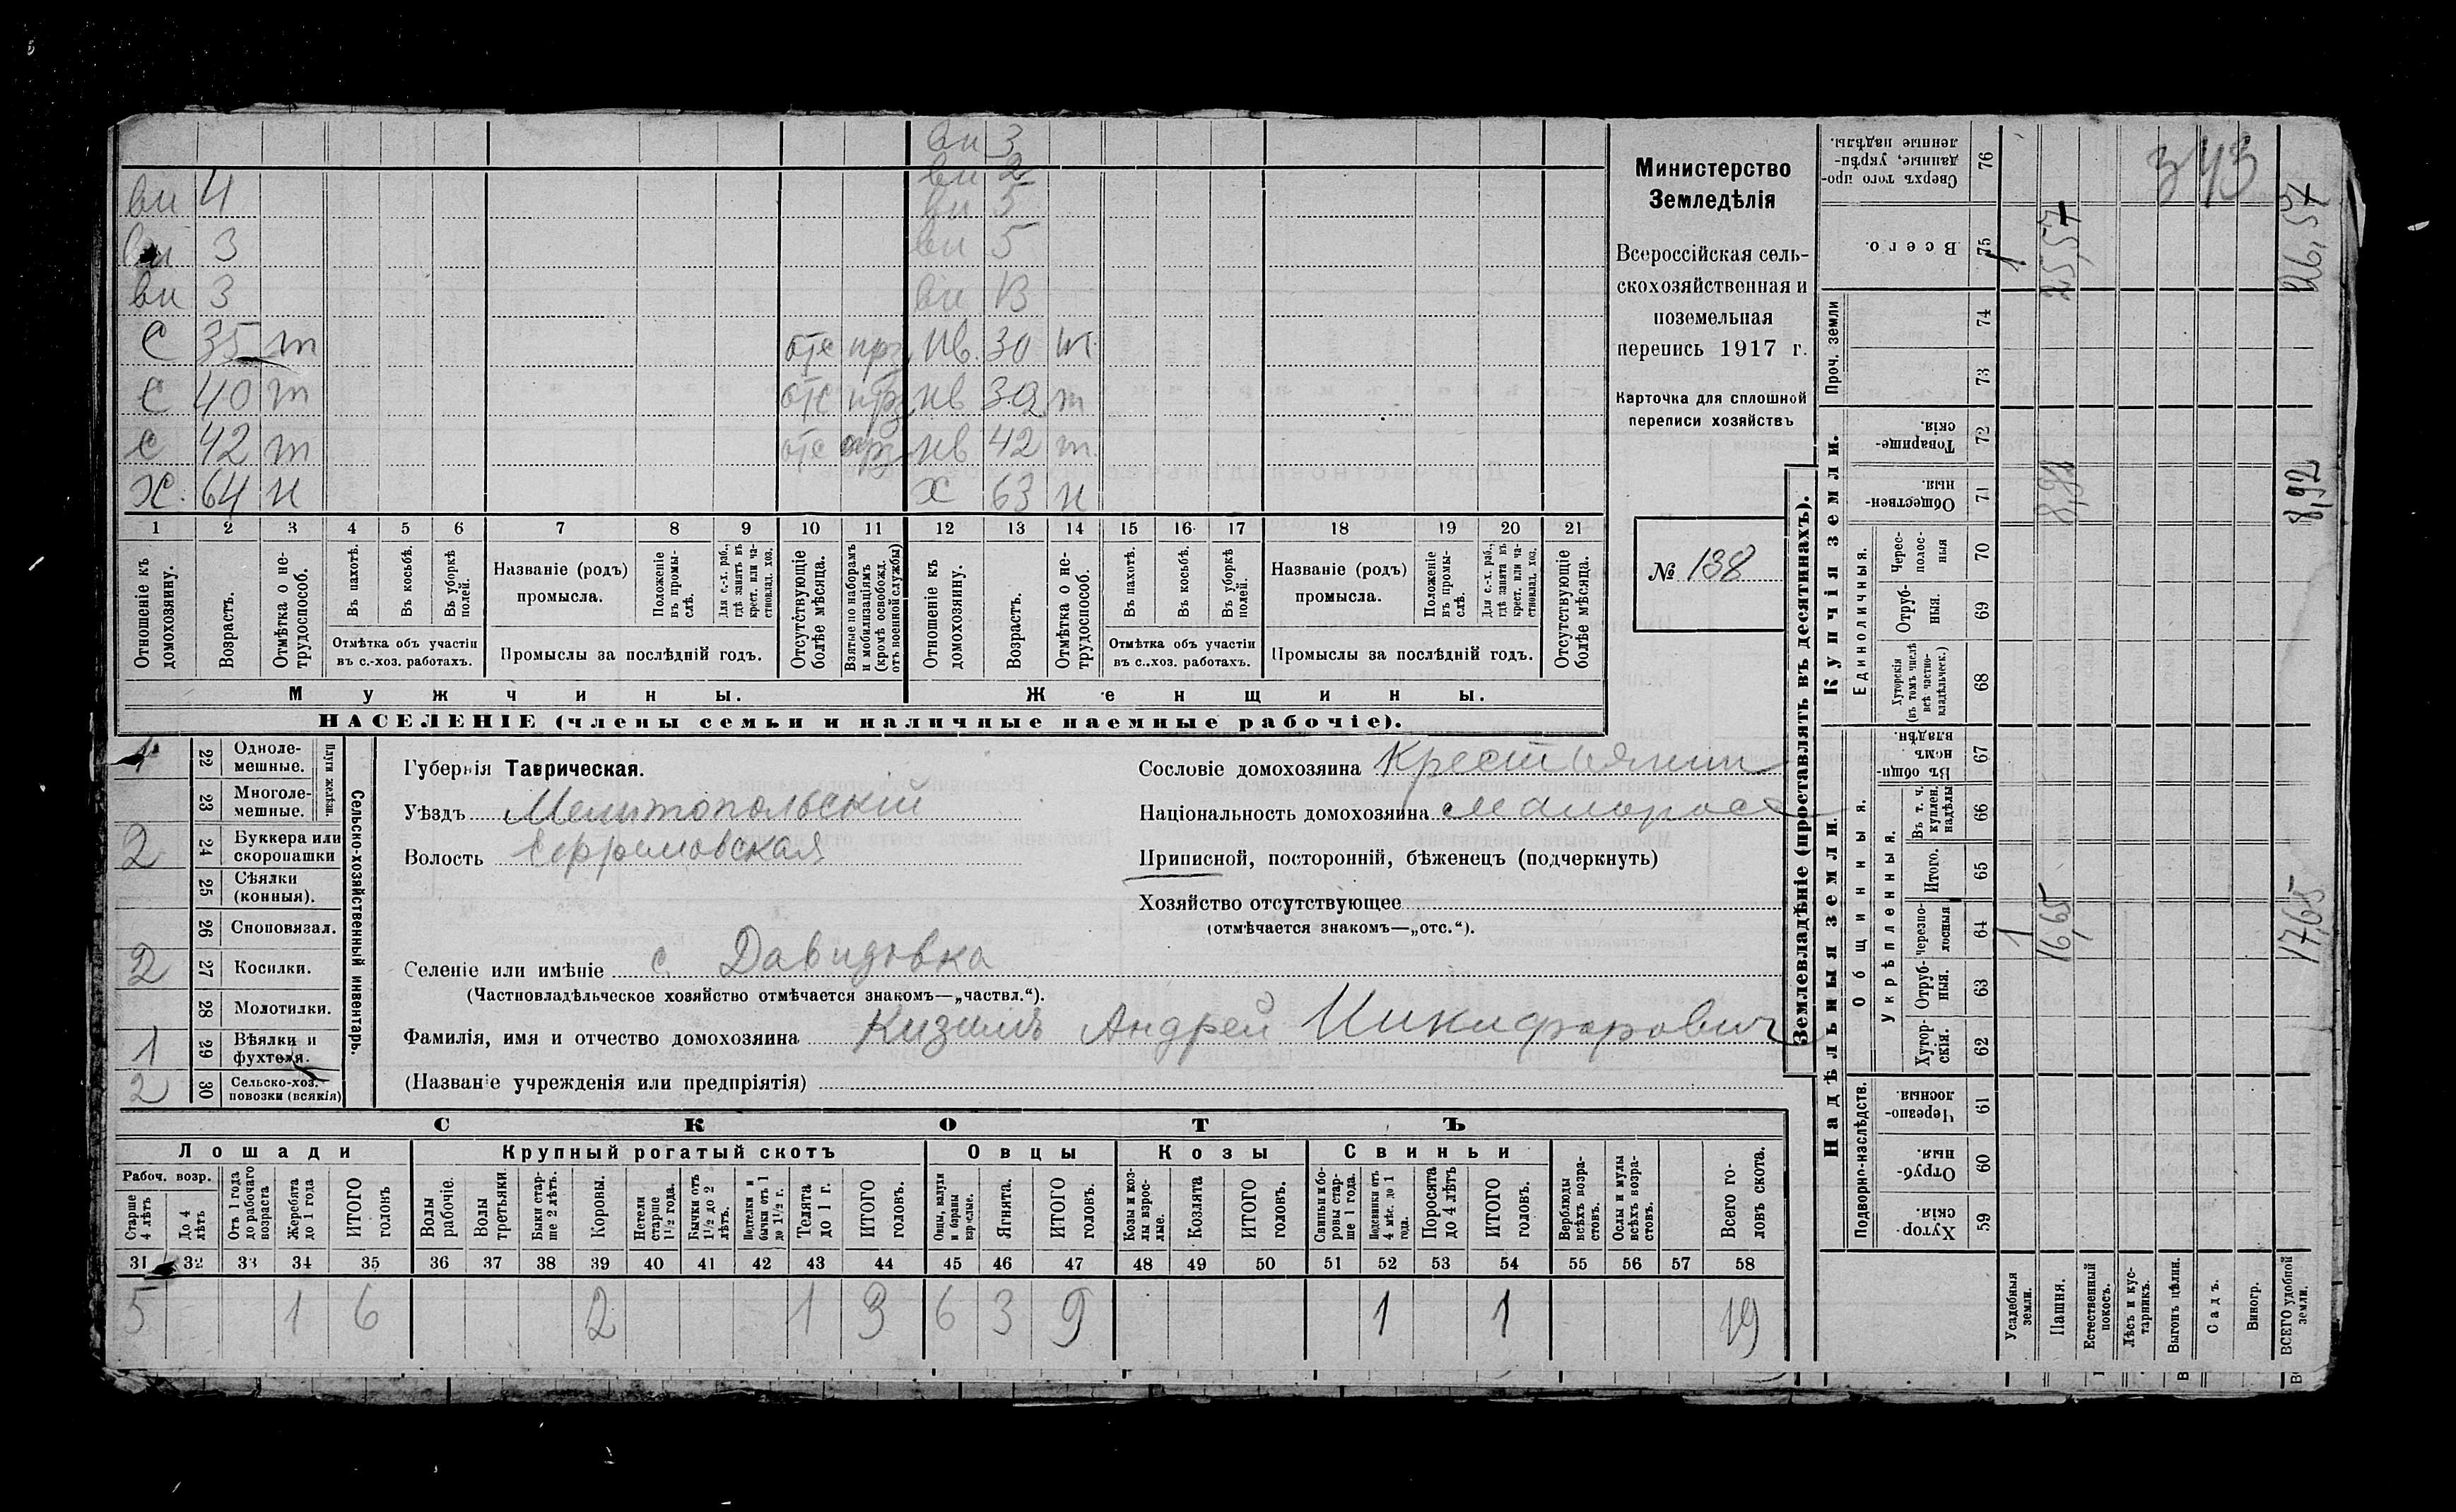 вн 3
вн 2
вн 4 вн 5
вн 3 вн 5
вн 3 вн 13
С 35 т отс прз нв. 30 т
С 40 т отс прз нв 32 т
С 42 т отс прз нв 42 т
Х. 64 н Х 63 н
1 2 3 4 5 6 7 8 9 10 11 12 13 14 15 16 17 18 19 20 21
Отношеніе къ домохозяину.
Возрастъ.
Отмѣтка о не-трудоспособ.
Въ пахотѣ.
Въ косьбѣ.
Въ уборкѣ полей.
Отмѣтка объ участіи въ с.-хоз. работахъ.
Названіе (родъ) промысла.
Положеніе въ промыслѣ.
Для с.-х. раб., гдѣ занятъ въ крест. или частновлад. хоз.
Промыслы за послѣдній годъ.
Отсутствующіе болѣе мѣсяца.
Взятые по наборамъ и мобилизаціямъ (кромѣ освобожд. отъ военной службы)
Отношеніе къ домохозяину.
Возрастъ.
Отмѣтка о не-трудоспособ.
Въ пахотѣ.
Въ косьбѣ.
Въ уборкѣ полей.
Отмѣтка объ участіи въ с..хоз. работахъ.
Названіе (родъ) промысла.
Положеніе въ промыслѣ.
Для с.-х. раб., гдѣ занята въ крест. или частновлад. хоз.
Промыслы за послѣдній годъ.
Отсутствующіе болѣе мѣсяца.
Мужчины. Женщины.
НАСЕЛЕНІЕ (члены семьи и наличные наемные рабочіе).
Министерство
Земледѣлія
Всероссійская сель-
скохозяйственная и
поземельная
перепись 1917 г.
Карточка для сплошной
переписи хозяйствъ
№ 138
1 22 Одноле-мешные.
23 Многоле-мешные.
Плуги желѣзн.
2 24 Буккера или скоропашки
25 Сѣялки (конныя).
26 Сноповязал.
2 27 Косилки.
28 Молотилки.
1 29 Вѣялки и фухтеля.
2 30 Сельско-хоз. повозки (всякія)
Сельско-хозяйственный инвентарь.
Губернія Таврическая.
Уѣздъ Мелитопольскій
Волость Ефремовская
Сословіе домохозяина Крестьянин
Національность домохозяина малорос
Приписной, посторонній, бѣженецъ (подчеркнуть)
Хозяйство отсутствующее
(отмѣчается знакомъ—„отс.“).
Селеніе или имѣніе с. Давидовка
(Частновладѣльческое хозяйство отмѣчается знакомъ—„частвл.“).
Фамилія, имя и отчество домохозяина Кизимъ Андрей Никифорович
(Названіе учрежденія или предпріятія)
СКОТЪ
Лошади Крупный рогатый скотъ Овцы Козы Свиньи
Рабоч. возр.
Старше 4 лѣтъ
До 4 лѣтъ
Отъ 1 года до рабочаго возраста
Жеребята до 1 года
ИТОГО головъ
Волы рабочіе.
Волы третьяки.
Быки стар-ше 2 лѣтъ.
Коровы.
Нетели старше 1½ года.
Бычки отъ 1½ до 2 лѣтъ.
Подтелки и бычки отъ 1 до 1½ г.
Телята до 1 г.
ИТОГО головъ.
Овцы, валухи и бараны взрослые.
Ягнята.
ИТОГО головъ.
Козы и коз-лы взрос-лые.
Козлята
ИТОГО головъ.
Свиньи и бо-ровы стар-ше 1 года.
Подсвинки отъ 4 мѣс. до 1 года.
Поросята до 4 лѣтъ
ИТОГО головъ.
Верблюды всѣхъ возра-стовъ.
Ослы и мулы всѣхъ возра-стовъ.
Всего го-ловъ скота.
31 32 33 34 35 36 37 38 39 40 41 42 43 44 45 46 47 48 49 50 51 52 53 54 55 56 57 58
5 1 6 2 1 3 6 3 9 1 1 19
Землевладѣніе (проставлять въ десятинахъ).
Надѣльныя земли. Купчія земли.
Подворно-наслѣдств.
Общинныя.
Укрѣпленныя.
Единоличныя.
Проч. земли
Сверхъ того про-данные, укрѣп-ленные надѣлы. 76
Всего. 75
74
73
Товарище-скія. 72
Обществен-ныя. 71
Черес-полос-ныя 70
Отруб-ныя. 69
Хуторскія (въ томъ числѣ всѣ частно-владѣльческ.) 68
Въ общин-номъ владѣн. 67
Въ т. ч. куплен. надѣлы 66
Итого. 65
черезпо-лосныя 64
Отруб-ныя. 63
Хутор-скія. 62
Черезпо-лосныя. 61
Отруб-ныя. 60
Хутор-скія. 59
Усадебныя земли. 1 1
Пашня. 16,65 8,92 25,57
Естественный покосъ.
Лѣсъ и кус-тарникъ.
Выгонъ цѣлин.
Садъ.
Виногр.
ВСЕГО удобной земли. 17,65 8,92 26,57
343